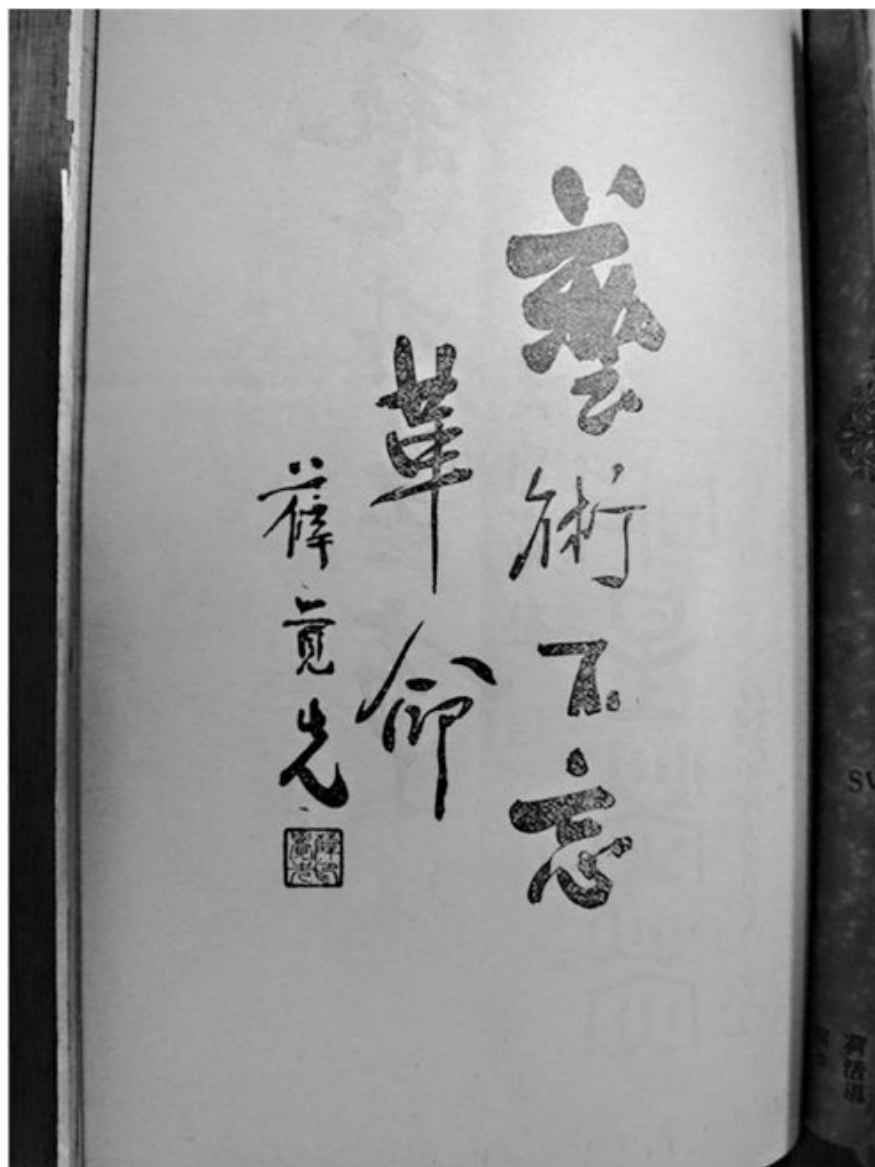 藝術不忘
革命
薛覺先